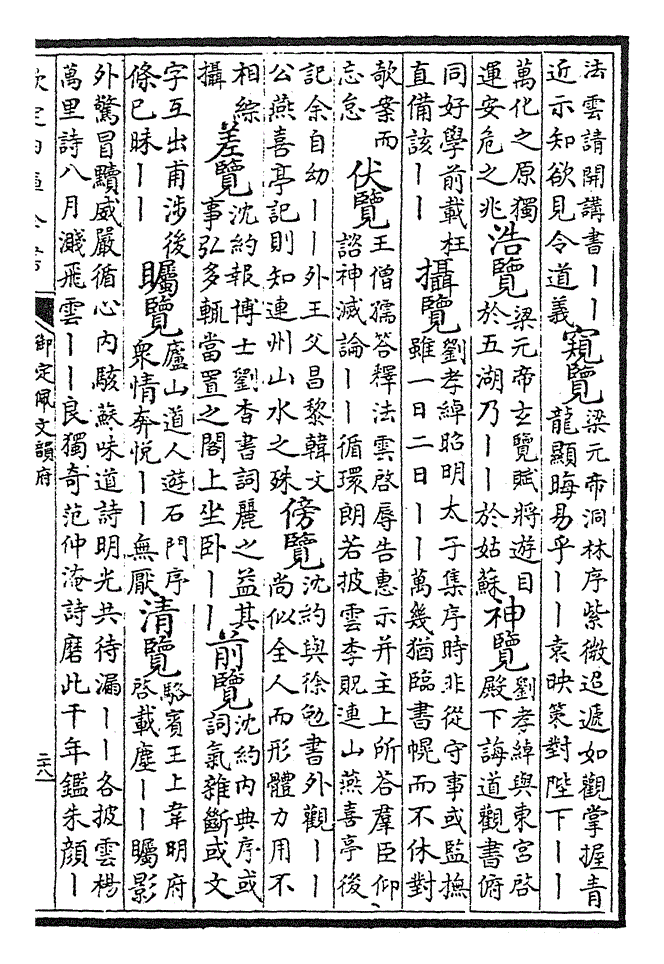 法雲請開講書丨丨
近示知欲見令道義
窺覽
梁元帝洞林序紫微迢遞如觀掌握青
龍顯晦易乎丨丨袁映策對陛下丨丨
萬化之原獨
運安危之兆
浩覽
梁元帝玄覽賦將遊目
於五湖乃丨丨於姑蘇
神覽
劉孝綽與東宮啓
殿下誨道觀書俯
同好學前載枉
直備該丨丨
攝覽
劉孝綽昭明太子集序時非從守事或監撫
雖一日二日丨丨萬幾猶臨書幌而不休對
欹案而
忘怠
伏覽
王僧孺答釋法雲啓辱告惠示并主上所答羣臣仰
諮神滅論丨丨循環朗若披雲李貺連山燕喜亭後
記余自幼丨丨外王父昌黎韓文
公燕喜亭記則知連州山水之殊
傍覽
沈約與徐勉書外觀丨丨
尚似全人而形體力用不
相綜
攝
差覽
沈約報博士劉杳書詞麗之益其
事弘多輒當置之閣上坐卧丨丨
前覽
沈約内典序或
詞氣雜斷或文
字互出甫涉後
條已昧丨丨
矚覽
廬山道人遊石門序
衆情奔悅丨丨無厭
清覽
駱賓王上韋明府
啓載塵丨丨矚影
外驚冒黷威嚴循心内駭蘇味道詩明光共待漏丨丨各披雲楊
萬里詩八月濺飛雲丨丨良獨奇范仲淹詩磨此千年鑑朱顔丨
欽定四庫全書
御定佩文韻府
二十八